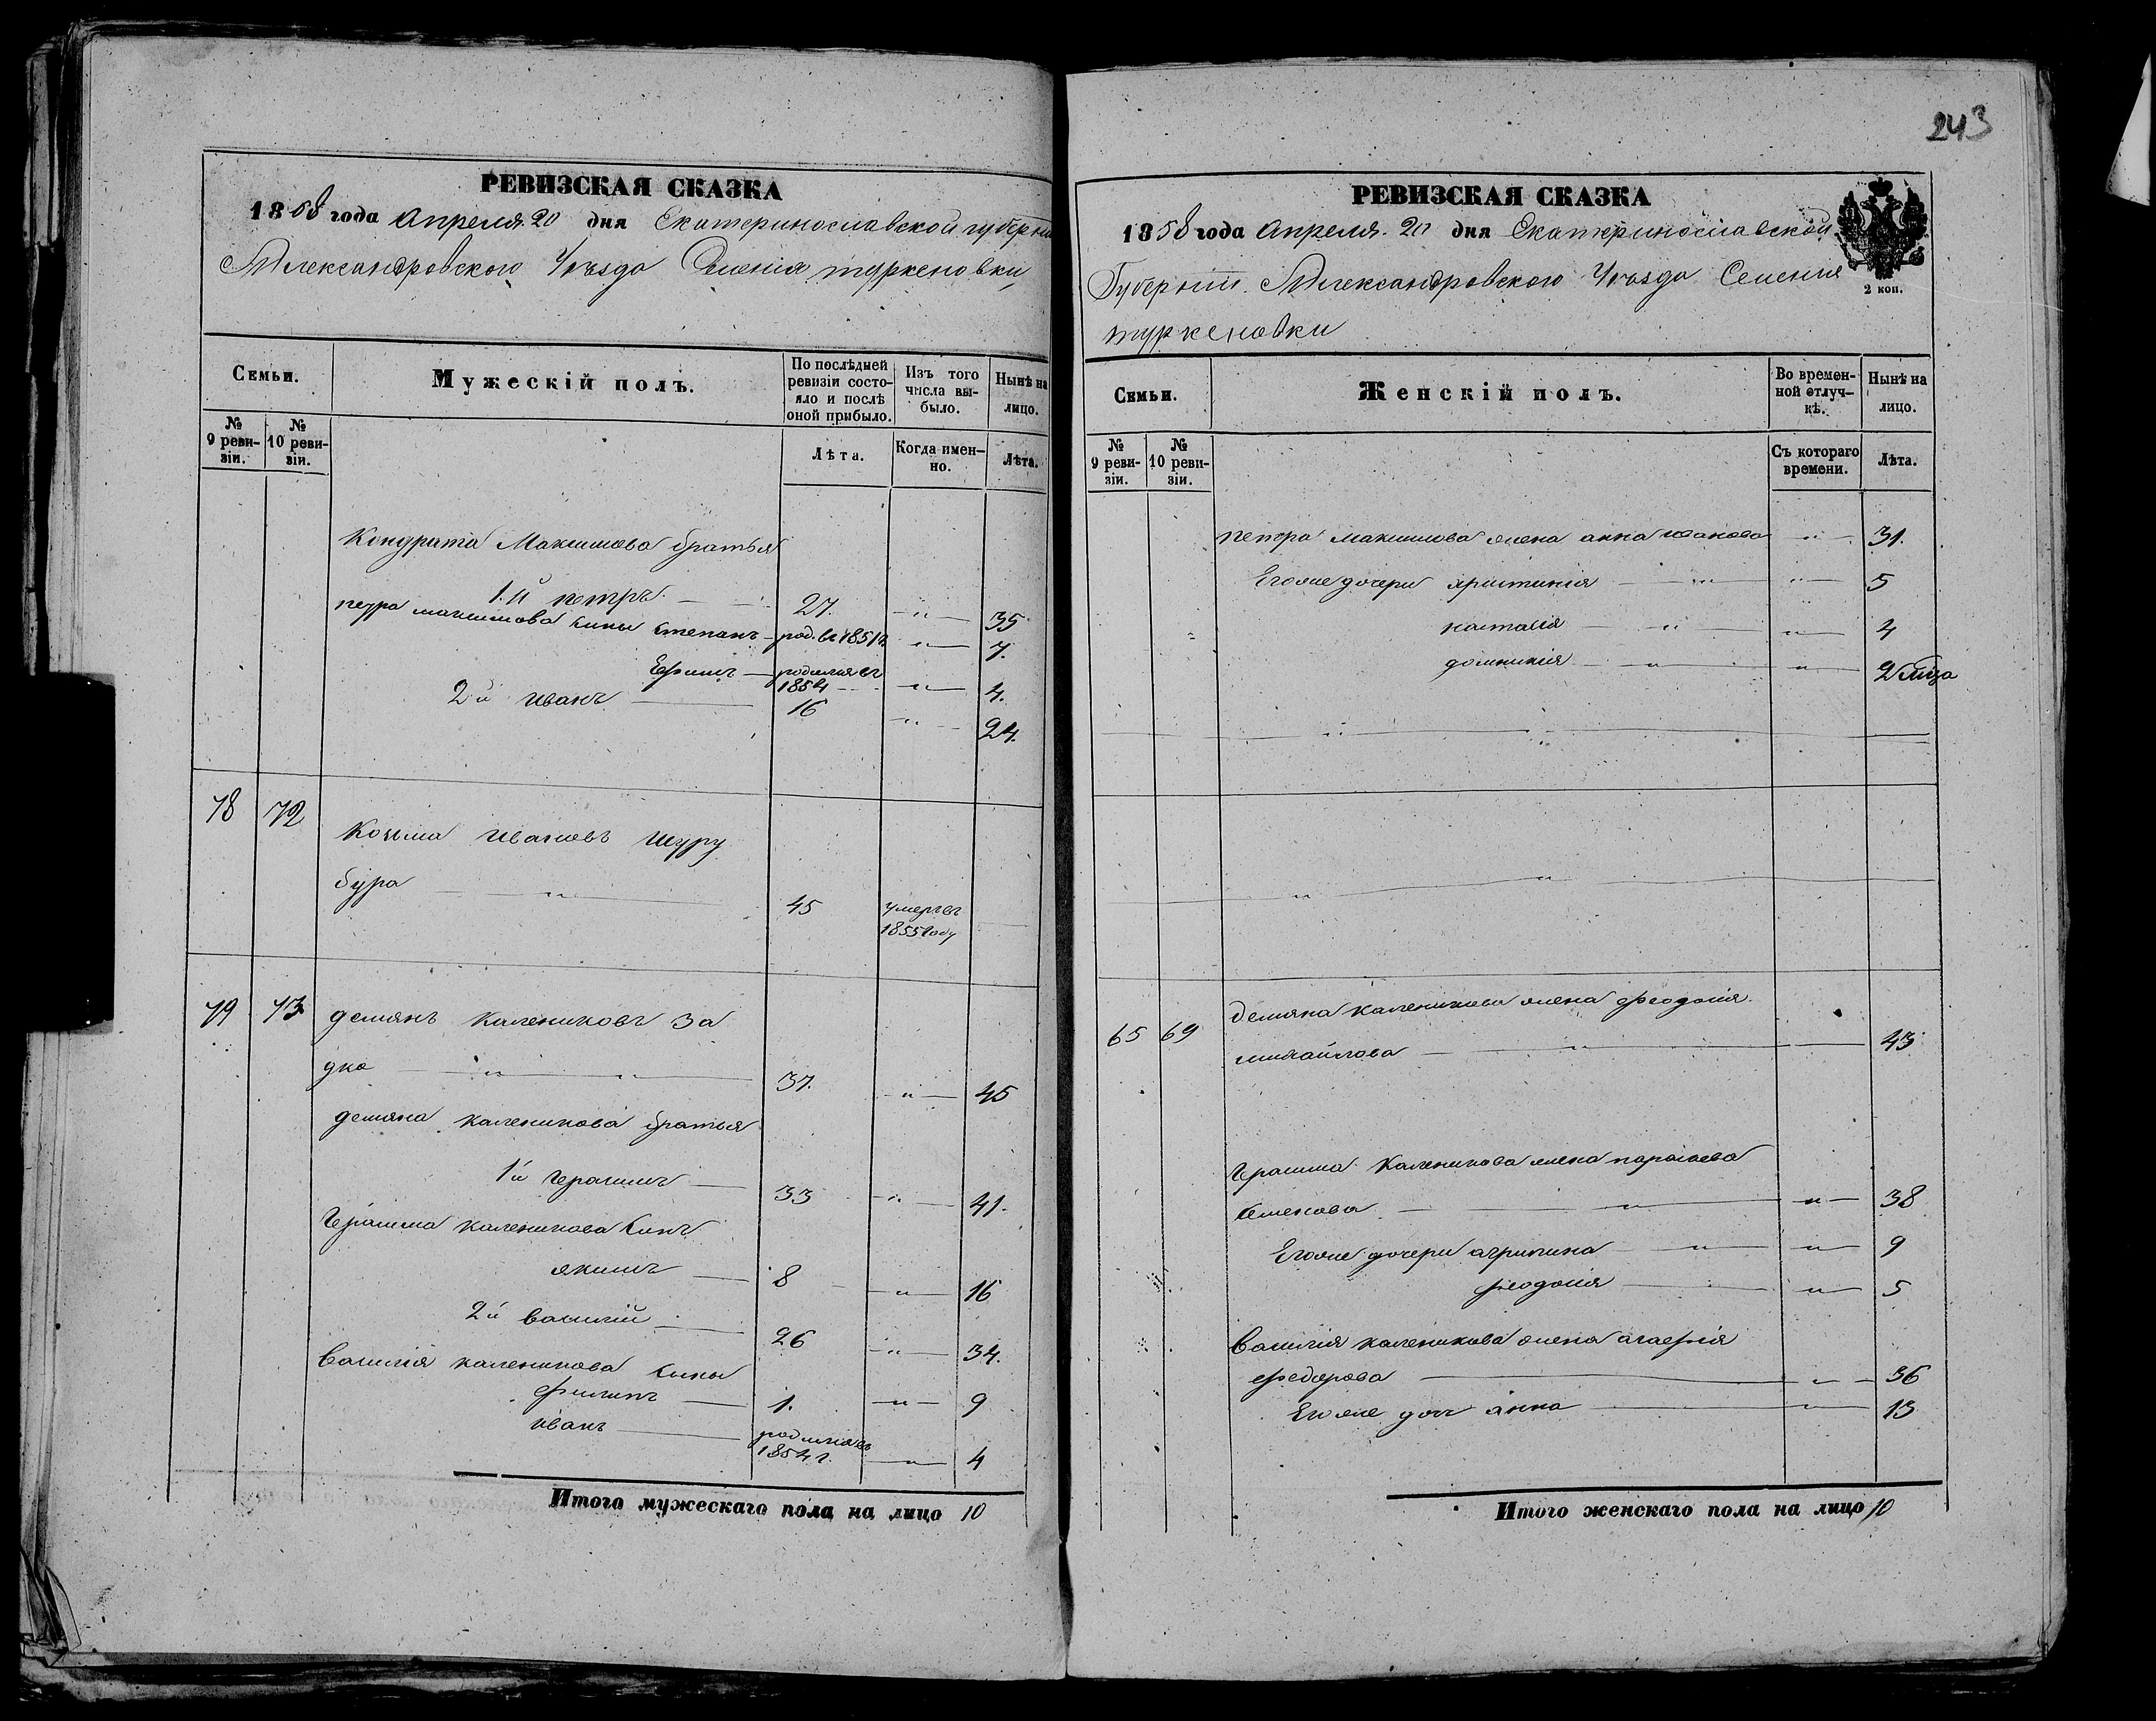 РЕВИЗСКАЯ СКАЗКА
1858 года Апреля 20 дня Екатеринославской губерніи
Александровского Уѣзда Селенія туркеновки
Семьи.
Мужескій полъ.
По послѣдней ревизіи состояло и послѣ оной прибыло.
Изъ того числа выбыло.
Нынѣ на лицо.
№ 9 ревизіи.
№ 10 ревизіи.
Лѣта.
Когда именно.
Лѣта.
Кондрата Максимова братья
1й петръ 27. " 35
петра максимова сины степанъ род. въ 1851 г. " 7.
Ефимъ родился въ 1854 " 4.
2й иванъ 16 " 24.
78 72 Козьма ивановъ шуру
бура " 45 умеръ въ 1855 году
79 73 демянъ калениковъ За
дко " " 37. " 45
демяна каленикова братья
1й герасимъ 33 " 41.
герасима каленикова синъ
якимъ 8 " 16
2й василий 26 " 34.
василія каленикова сины
филипъ 1. " 9
иванъ родился въ 1854 г. " 4
Итого мужескаго пола на лицо 10
243
РЕВИЗСКАЯ СКАЗКА
1858 года Апреля 20 дня Екатеринославской
Губерніи Александровского Уѣзда Селения
туркеновки
2 коп.
Семьи.
Женскій полъ.
Во временной отлучкѣ.
Нынѣ на лицо.
№ 9 ревизіи.
№ 10 ревизіи.
Съ котораго времени.
Лѣта.
петра максимова жена анна иванова " 31.
Егоже дочери христинія " " 5
настасія " " 4
домникія " " 2
" "
" "
65 69 Демяна каленикова жена феодосія
михайлова " 43
герасима Каленикова жена параскева
семенова " " 38
Егоже дочери агрипина " " 9
феодосія " 5
Василия каленикова жена агафія
федорова " 36
Егоже дочъ анна " 13
Итого женскаго пола на лицо 10